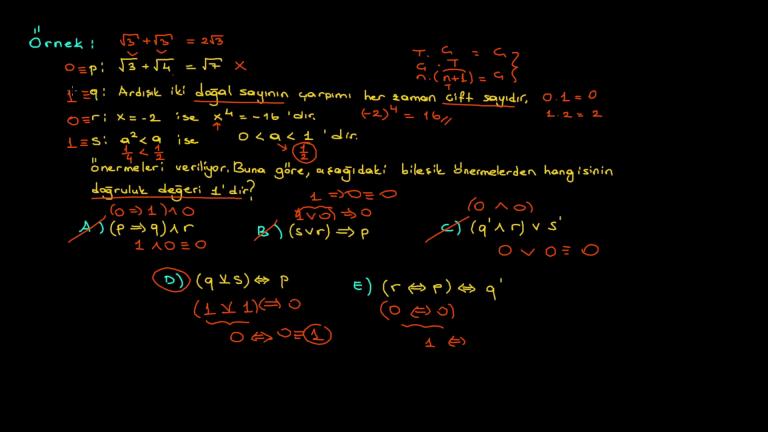 Örnek: √3 + √3 = 2√3
T. Ç = Ç
0 ≡ p: √3 + √4 = √7 x
Ç . T
n.(n+1) = Ç
T
1 ≡ q: Ardışık iki doğal sayının çarpımı her zaman çift sayıdır. 0.1 = 0
0 ≡ r: x = -2 ise x⁴ = -16 'dır. (-2)⁴ = 16 1.2 = 2
1 ≡ s: a² < a ise 0 < a < 1 'dir.
1/4 < 1/2 → 1/2
önermeleri veriliyor. Buna göre, aşağıdaki bileşik önermelerden hangisinin
doğruluk değeri 1'dir? 1 ⇒ 0 ≡ 0
(0 ⇒ 1) ∧ 0 (1 ∨ 0) ⇒ 0 (0 ∧ 0)
A) (p ⇒ q) ∧ r B) (s ∨ r) ⇒ p C) (q' ∧ r) ∨ s'
1 ∧ 0 ≡ 0 0 ∨ 0 ≡ 0
D) (q ⊻ s) ⇔ p E) (r ⇔ p) ⇔ q'
(1 ⊻ 1) ⇔ 0 (0 ⇔ 0)
0 ⇔ 0 ≡ 1 1 ⇔